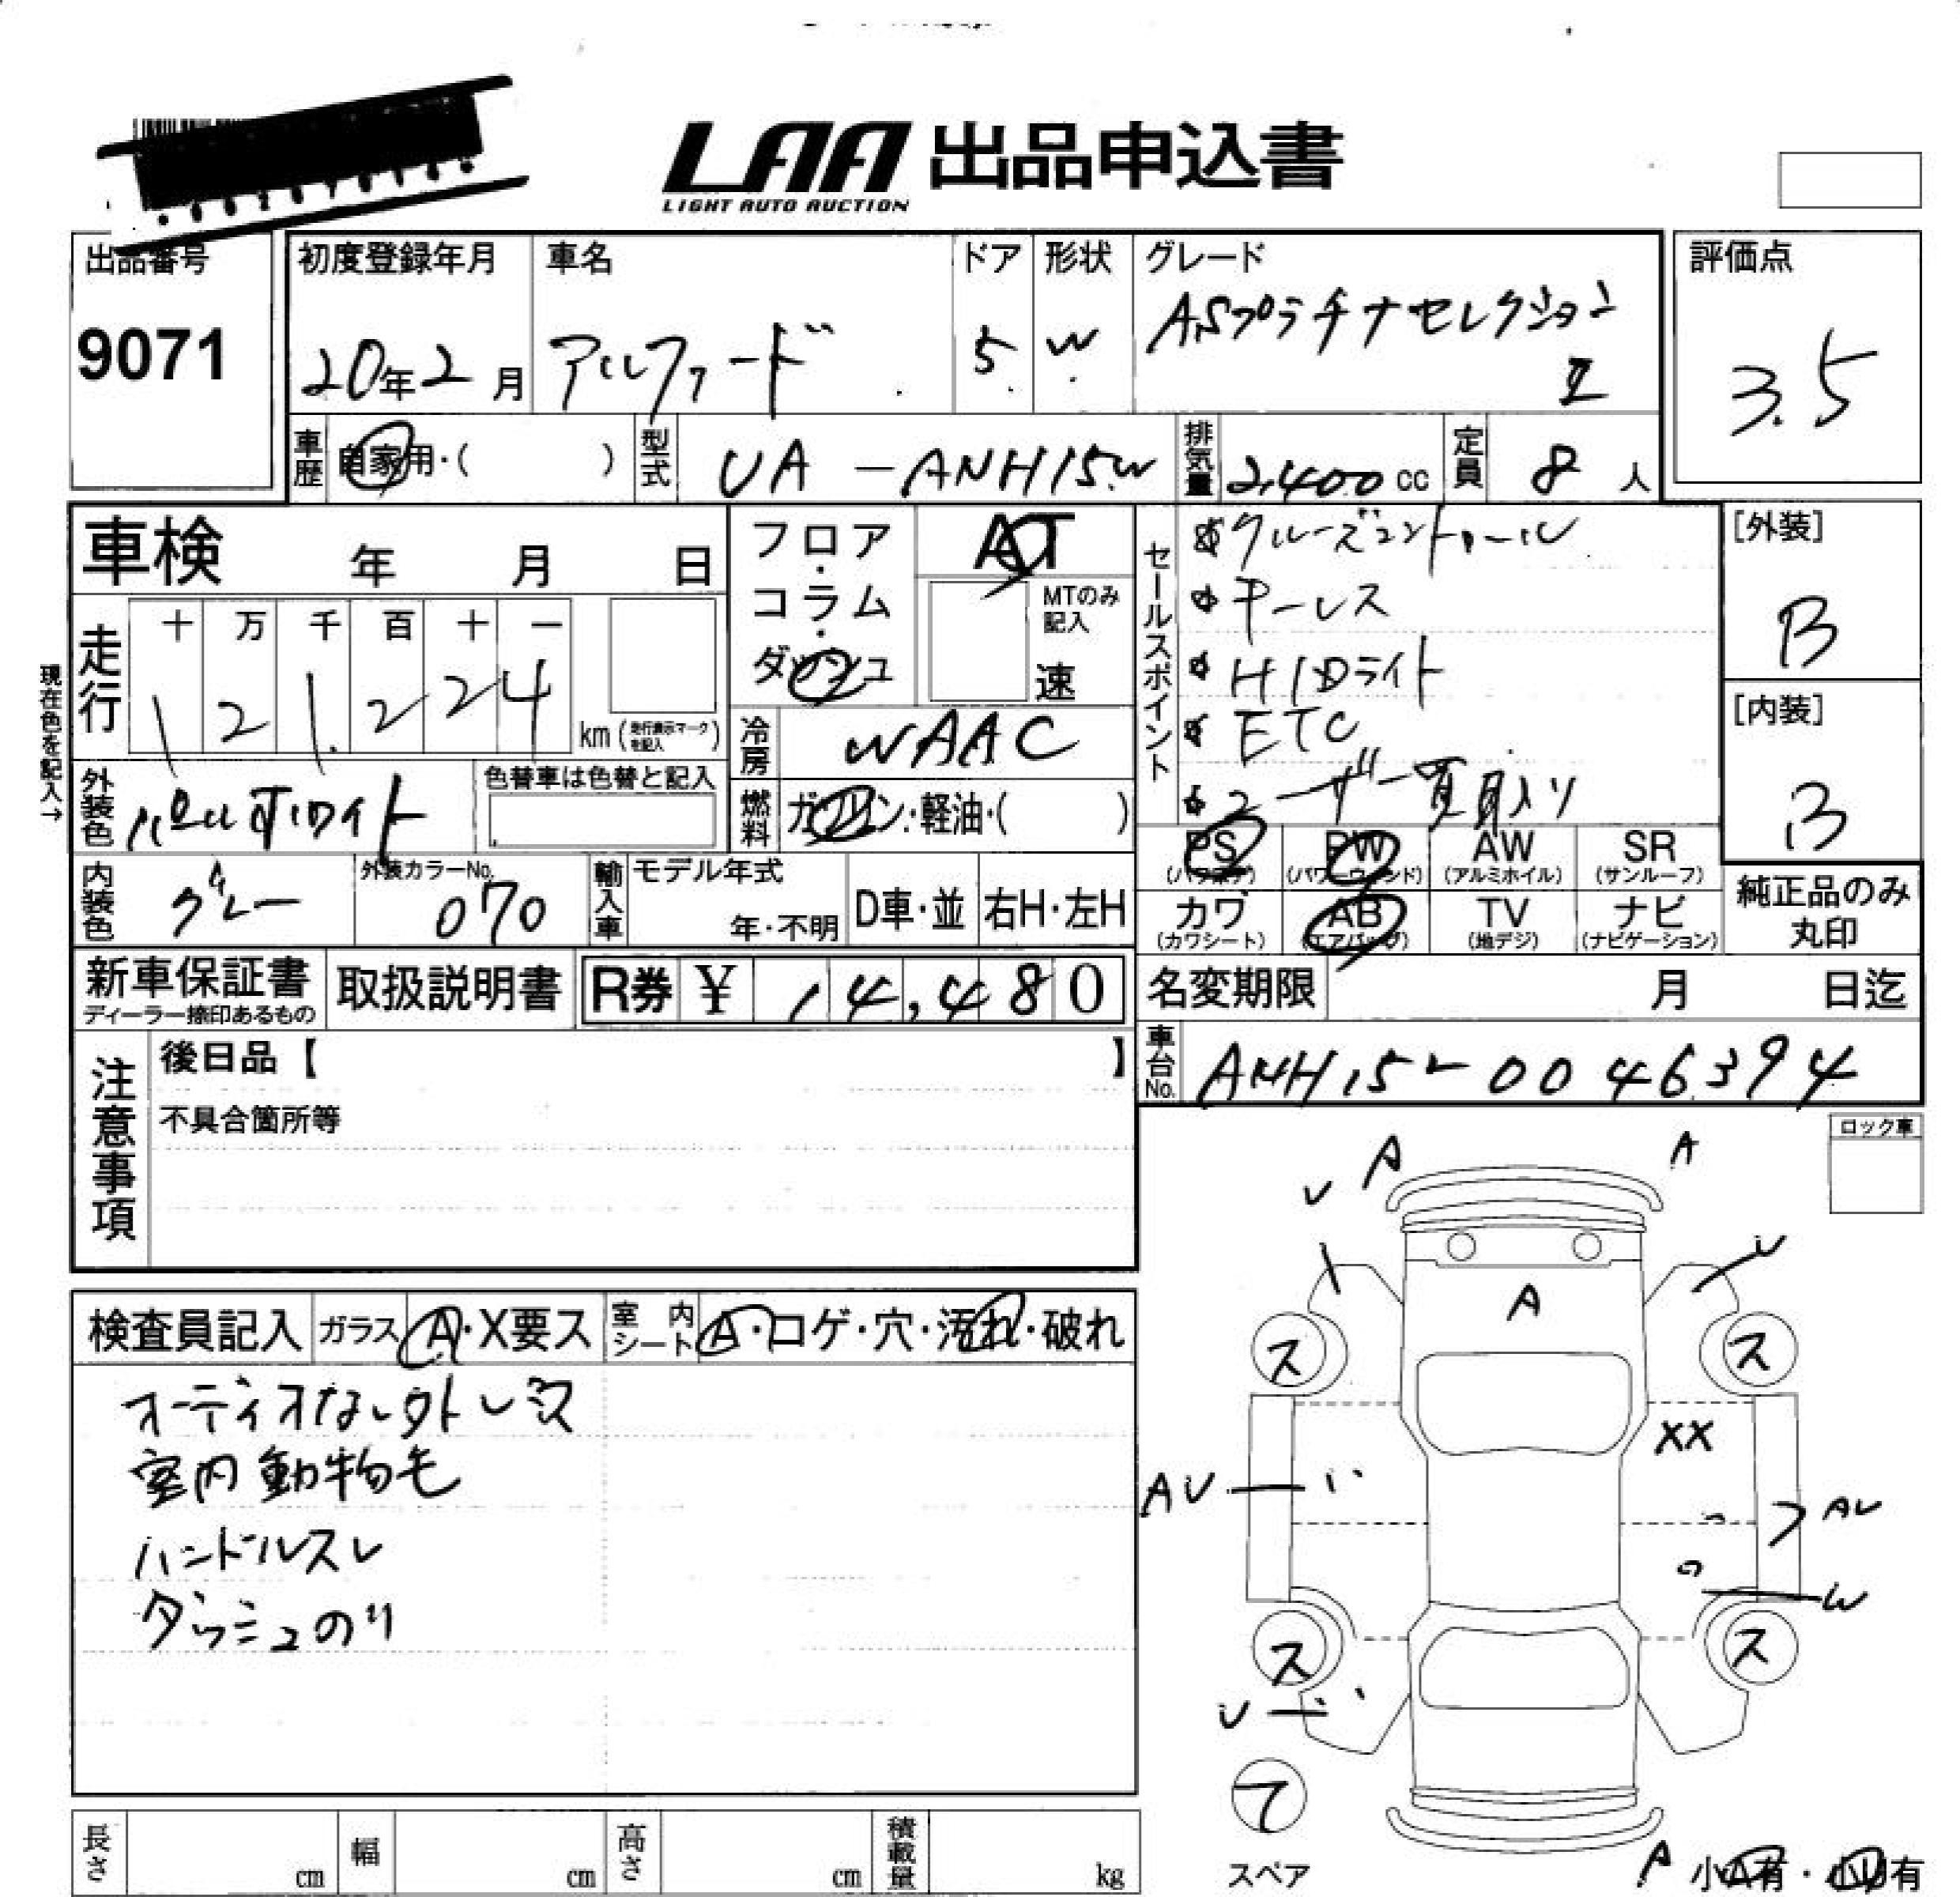 LAA 出品申込書
LIGHT AUTO AUCTION
出品番号
9071
初度登録年月
20年2月
車名
アルファード
ドア
5
形状
W
グレード
ASプラチナセレクション
II
評価点
3.5
車歴
自家用・( )
型式
UA-ANH15W
排気量
2,400 cc
定員
8人
車検 年 月 日
フロア・コラム・ダッシュ
AT
MTのみ記入
速
走行
十 万 千 百 十 一
121,224
km (走行表示マークを記入)
現在色を記入→
冷房
WAAC
外装色
パールホワイト
色替車は色替と記入
燃料
ガソリン・軽油・( )
内装色
グレー
外装カラーNo.
070
輸入車
モデル年式
年・不明
D車・並
右H・左H
セールスポイント
☆クルーズコントロール
☆キーレス
☆HIDライト
☆ETC
☆ユーザー買入り
[外装]
B
[内装]
B
PS PW AW SR
(パワステ) (パワーウィンド) (アルミホイル) (サンルーフ)
カワ AB TV ナビ
(カワシート) (エアバッグ) (地デジ) (ナビゲーション)
純正品のみ
丸印
新車保証書
ディーラー捺印あるもの
取扱説明書
R券 ¥ 14,480
名変期限 月 日迄
車台No.
ANH15-0046394
注意事項
後日品【 】
不具合箇所等
ロック車
検査員記入
ガラス A・X要ス
室内シート A・コゲ・穴・汚れ・破れ
オーディオなし 外レミス
室内動物毛
ハンドルスレ
ダッシュのり
A A
U
U
A
ス ス
XX
AU
AU
W
ス ス
U
テ
スペア
A 小A有・小U有
長さ cm
幅 cm
高さ cm
積載量 kg